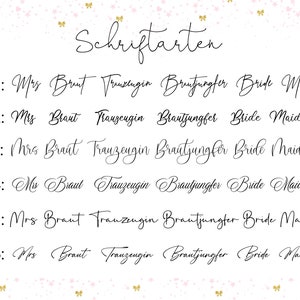 Schriftarten
: Mrs Braut Trauzeugin Brautjungfer Bride M
: Mrs Braut Trauzeugin Brautjungfer Bride Maid
: Mrs Braut Trauzeugin Brautjungfer Bride Maid
: Mrs Braut Trauzeugin Brautjungfer Bride Maid
: Mrs Braut Trauzeugin Brautjungfer Bride Ma
: Mrs Braut Trauzeugin Brautjungfer Bride Ma